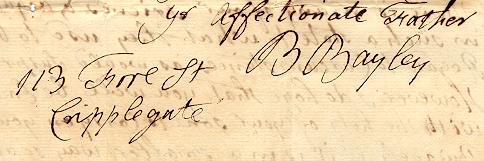 yr Affectionate Father
B Bayley
113 Fore St
Cripplegate